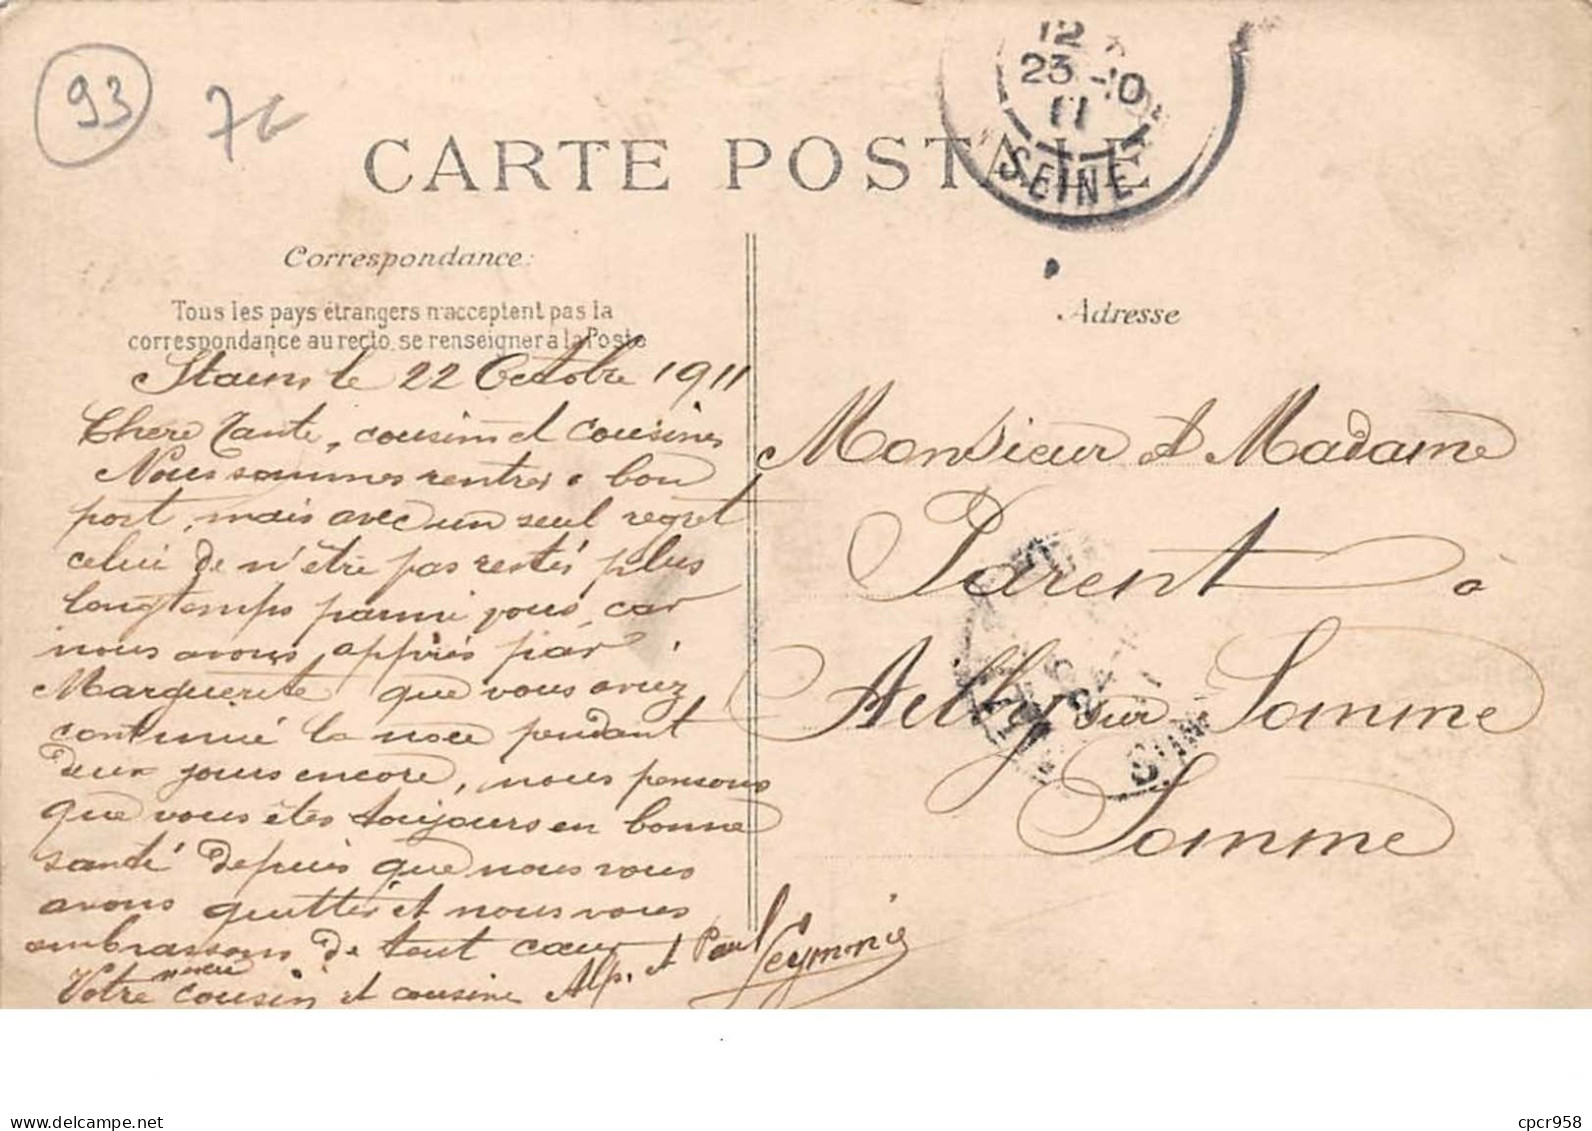 93
76
CARTE POSTALE
12
23 -10
11
SEINE
Correspondance:
Tous les pays étrangers n'acceptent pas la
correspondance au recto, se renseigner à la Poste
Stains le 22 Octobre 1911
Chere Tante, cousin et cousines
Nous sommes rentrés a bon
port, mais avec un seul regret
celui de n'être pas restés plus
longtemps parmi vous, car
nous avons appris par
Marguerite que vous aviez
continué la noce pendant
deux jours encore, nous pensons
que vous êtes toujours en bonne
santé depuis que nous vous
avons quittés et nous vous
embrassons de tout cœur
Votre neveu cousin et cousine Alp. et Paul
Adresse
Monsieur et Madame
Parent à
Ailly sur Somme
Somme
delcampe.net
cpcr958